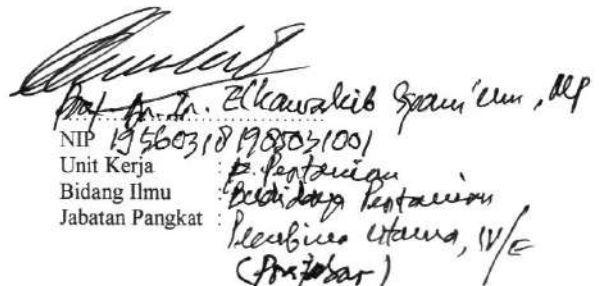 Prof. Dr. Ir. Elkawakib Syam'un, MP
NIP 195603181985031001
Unit Kerja : F. Pertanian
Bidang Ilmu : Budidaya Pertanian
Jabatan Pangkat : Pembina Utama, IV/E